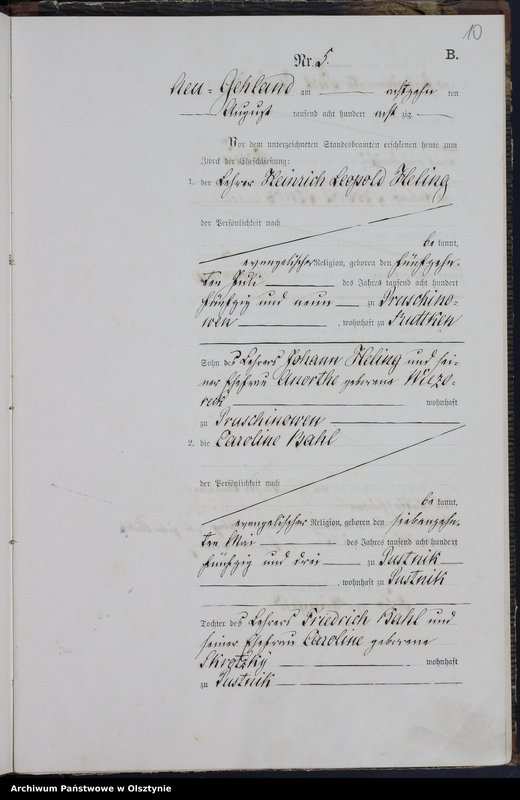 10
Nr. 5. B.
Neu-Gehland am achtzehn ten
August tausend acht hundert acht zig
Vor dem unterzeichneten Standesbeamten erschienen heute zum
Zweck der Eheschließung:
1. der Lehrer Heinrich Leopold Heling
der Persönlichkeit nach
be kannt,
evangelischer Religion, geboren den fünfzehn-
ten Juli des Jahres tausend acht hundert
fünfzig und neun zu Pruschino-
wen, wohnhaft zu
Sohn des Lehrers Johann Heling und sei-
ner Ehefrau Anorthe geborene Wiezo-
reck wohnhaft
zu Pruschinowen
2. die Caroline Bahl
der Persönlichkeit nach
be kannt,
evangelischer Religion, geboren den siebenzehn-
ten Mai des Jahres tausend acht hundert
fünfzig und drei zu Pustnik
, wohnhaft zu Pustnik
Tochter des Lehrers Friedrich Bahl und
seiner Ehefrau Caroline geborene
Skrotzky wohnhaft
zu Pustnik
Archiwum Państwowe w Olsztynie